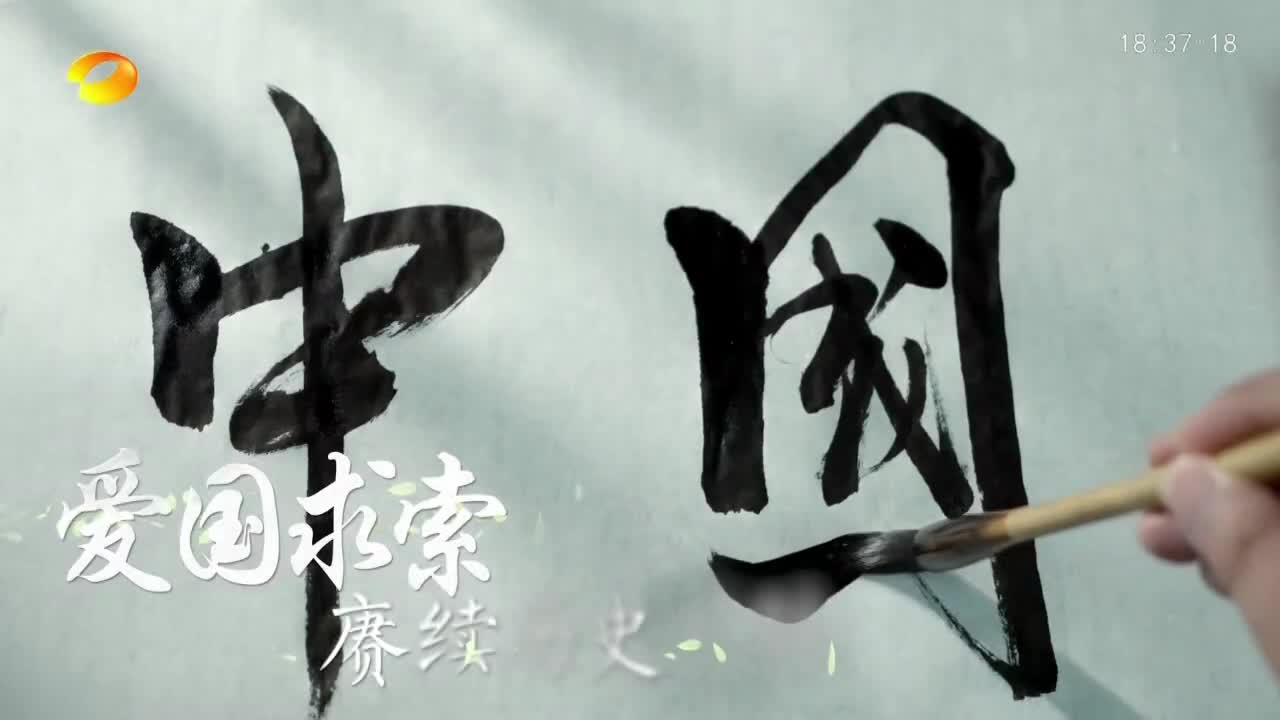 18:37-18
中國
爱国求索
赓续 史